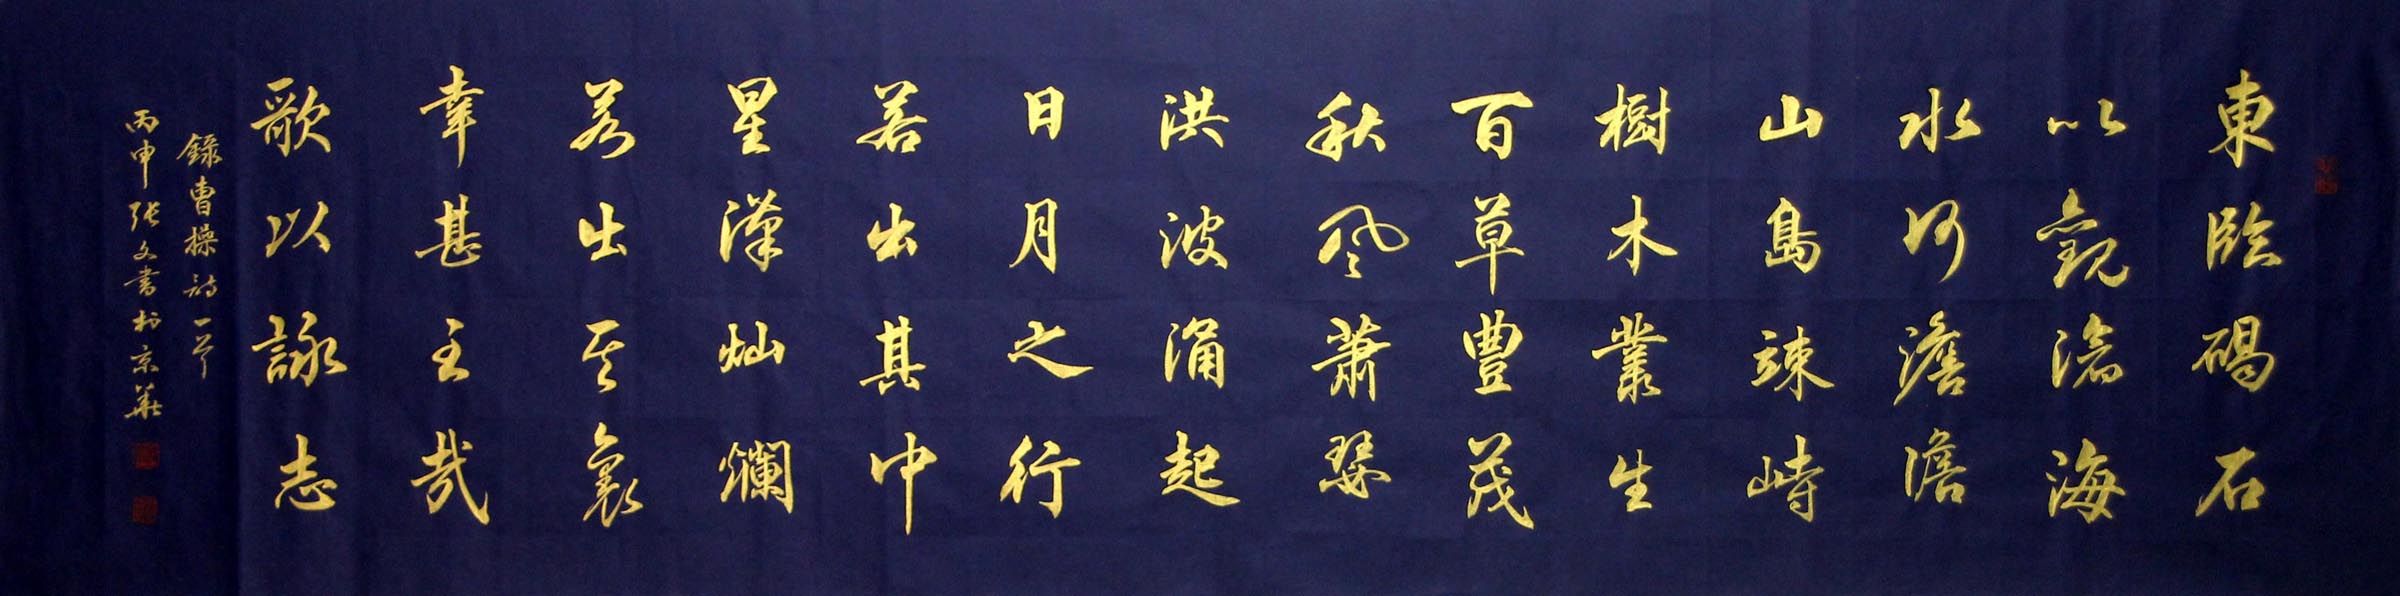 東臨碣石
以觀滄海
水何澹澹
山島竦峙
樹木叢生
百草豐茂
秋風蕭瑟
洪波涌起
日月之行
若出其中
星漢燦爛
若出其裏
幸甚至哉
歌以詠志
錄曹操詩一首
丙申張文書於京華